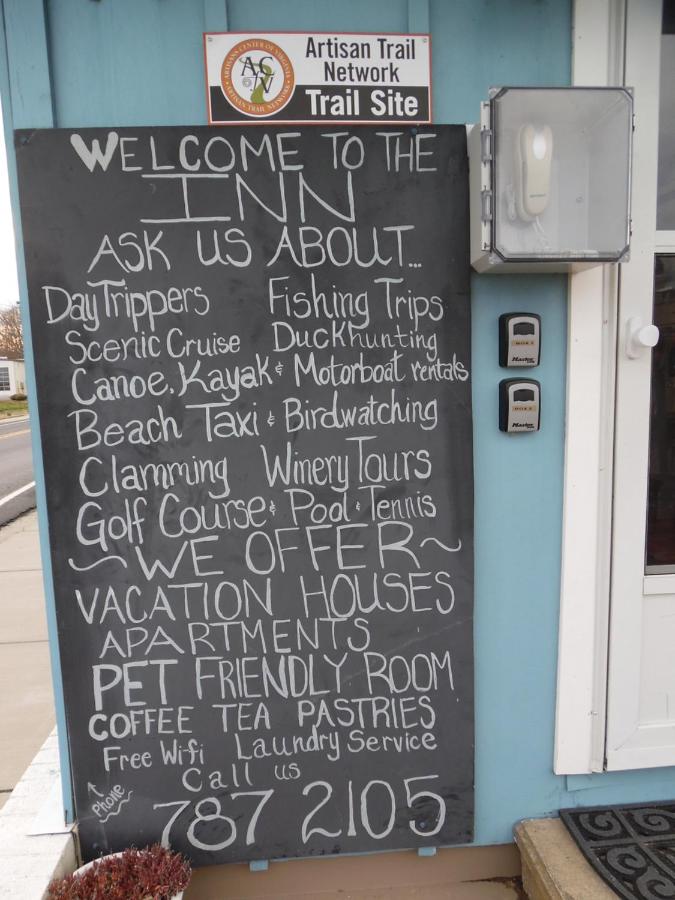 Artisan Trail
Network
Trail Site
ARTISANS CENTER OF VIRGINIA
ARTISAN TRAIL NETWORK
ACV
WELCOME TO THE
INN
ASK US ABOUT...
Day Trippers Fishing Trips
Scenic Cruise Duckhunting
Canoe, Kayak & Motorboat rentals
Beach Taxi & Birdwatching
Clamming Winery Tours
Golf Course & Pool & Tennis
~WE OFFER~
VACATION HOUSES
APARTMENTS
PET FRIENDLY ROOM
COFFEE TEA PASTRIES
Free Wifi Laundry Service
Call us
Phone
787 2105
Master
Master